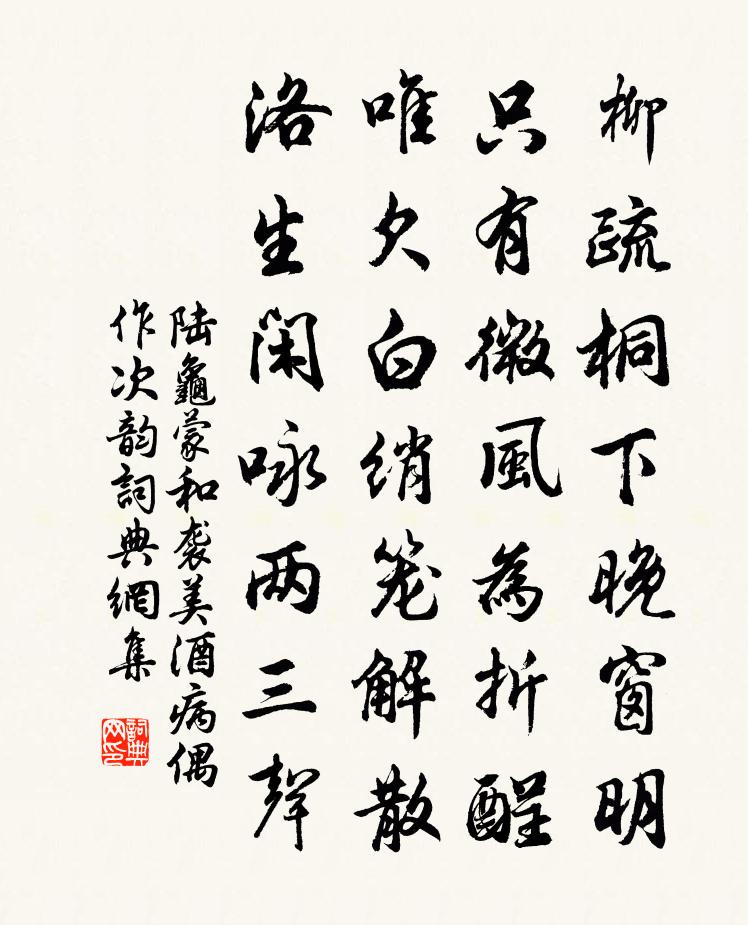 柳疏桐下晚窗明
只有微風為折醒
唯欠白綃笼解散
洛生閑咏两三聲
陆龜蒙和袭美酒病偶
作次韵詞典網集
詞典网印